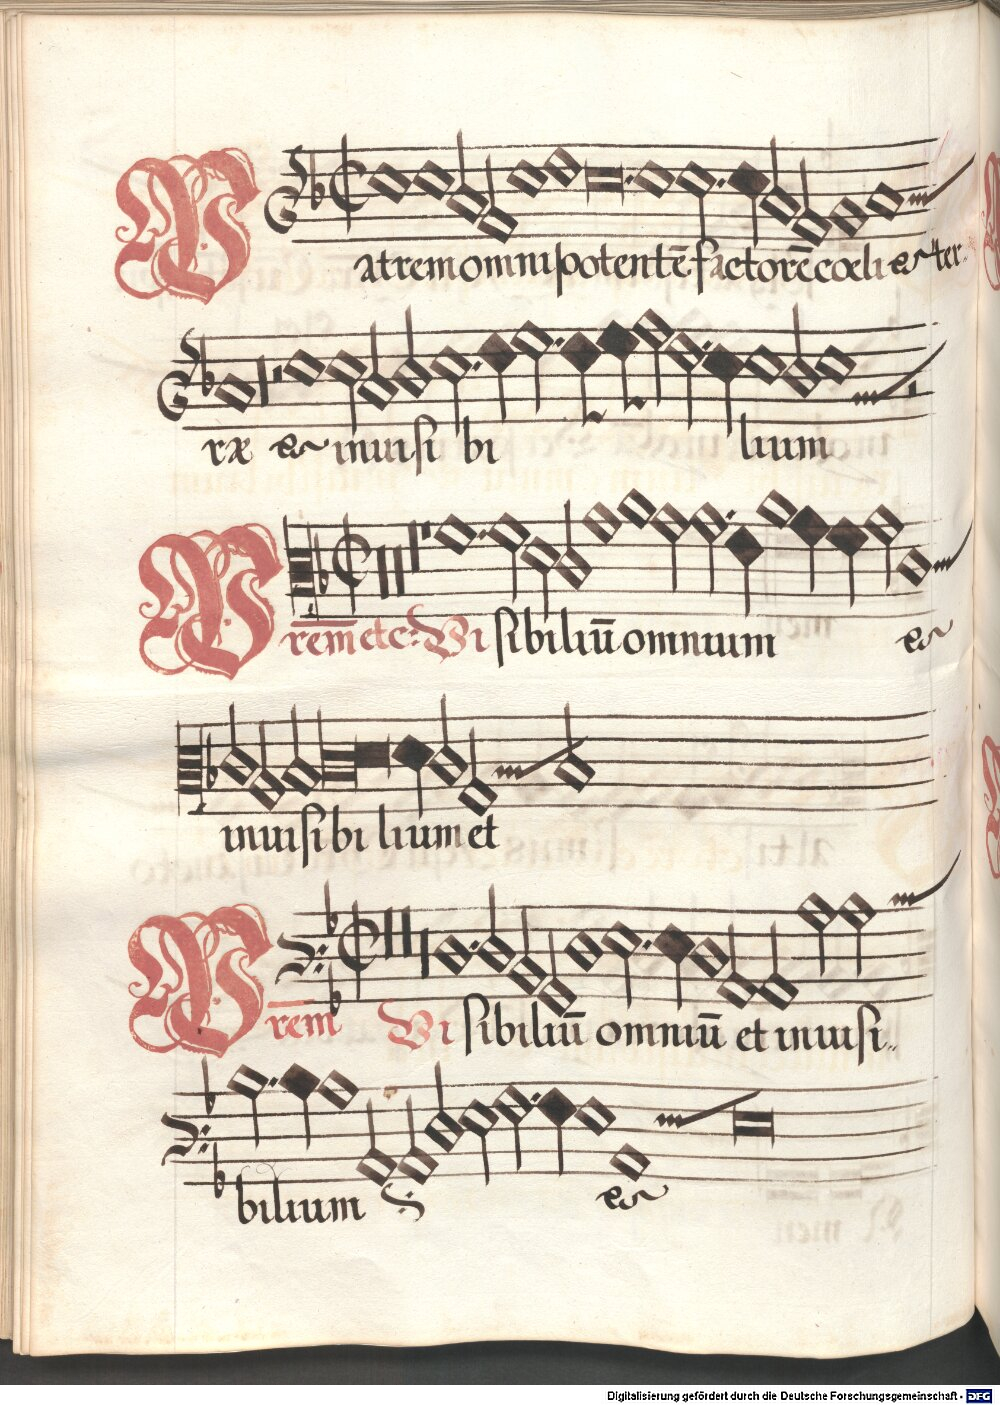 Patrem omnipotentē factorē cœli et ter-
ræ et inuisi bi lium
Prem̄ etc: Vi sibiliū omnium et
inuisibi lium et
Prem̄ Vi sibiliū omniū et inuisi-
bilium et
Digitalisierung gefördert durch die Deutsche Forschungsgemeinschaft - DFG